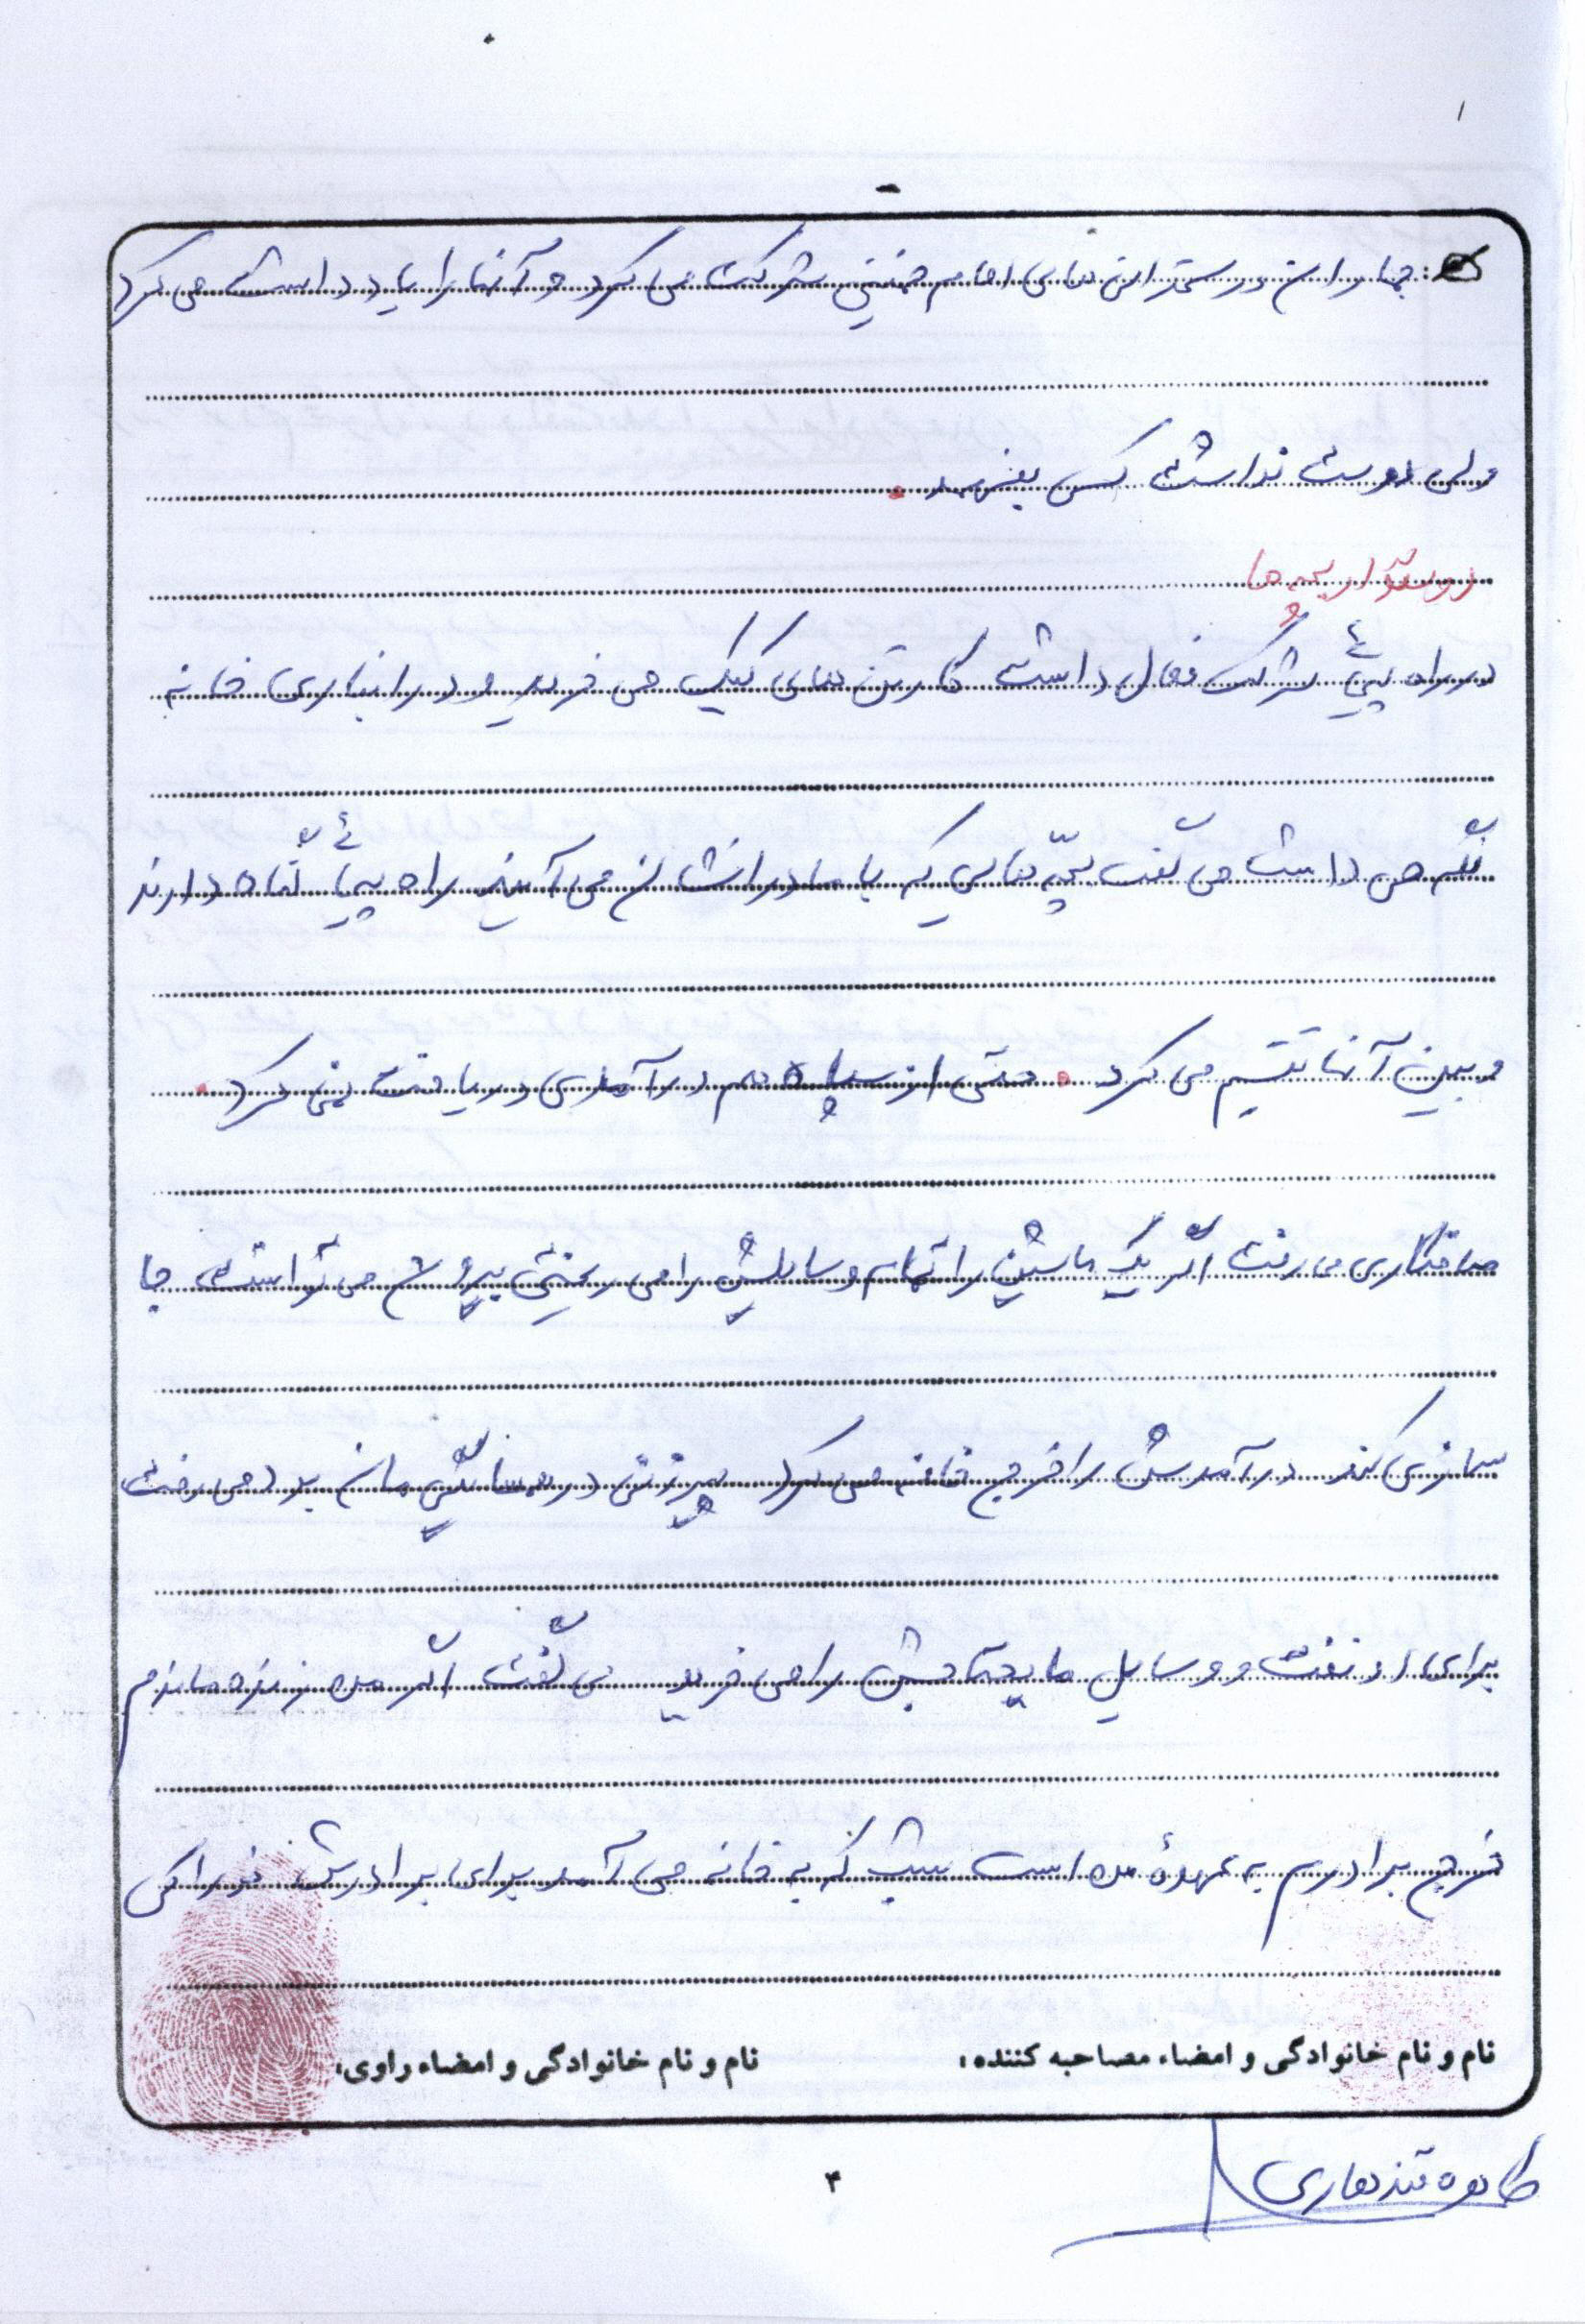 ۱
جماران در سخنرانی های امام خمینی شرکت می کرد و آنها را یادداشت می کرد
ولی دوست نداشت کسی بفهمد.
دوستدار بچه ها
در راه پیمائی شرکت فعال داشت کارتن های کیک می خرید و در انباری خانه
نگه می داشت می گفت بچّه هایی که با مادرانشان می آیند راه پیمائی گناه دارند
و بین آنها تقسیم می کرد. حتی از سپاه هم درآمدی دریافت نمی کرد.
صافکاری می رفت اگر یک ماشین را تمام وسایلش را می ریختی بیرون می توانست جا
سازی کند درآمدش را خرج خانه می کرد پیرزنی در همسایگی مان بود می رفت
برای او نفت و وسایل مایحتاجش را می خرید می گفت اگر من زنده ماندم
خرج برادرم به عهدهٔ من است شب که به خانه می آمد برای برادرش خوراکی
نام و نام خانوادگی و امضاء مصاحبه کننده:
نام و نام خانوادگی و امضاء راوی:
۳
طاهره قندهاری